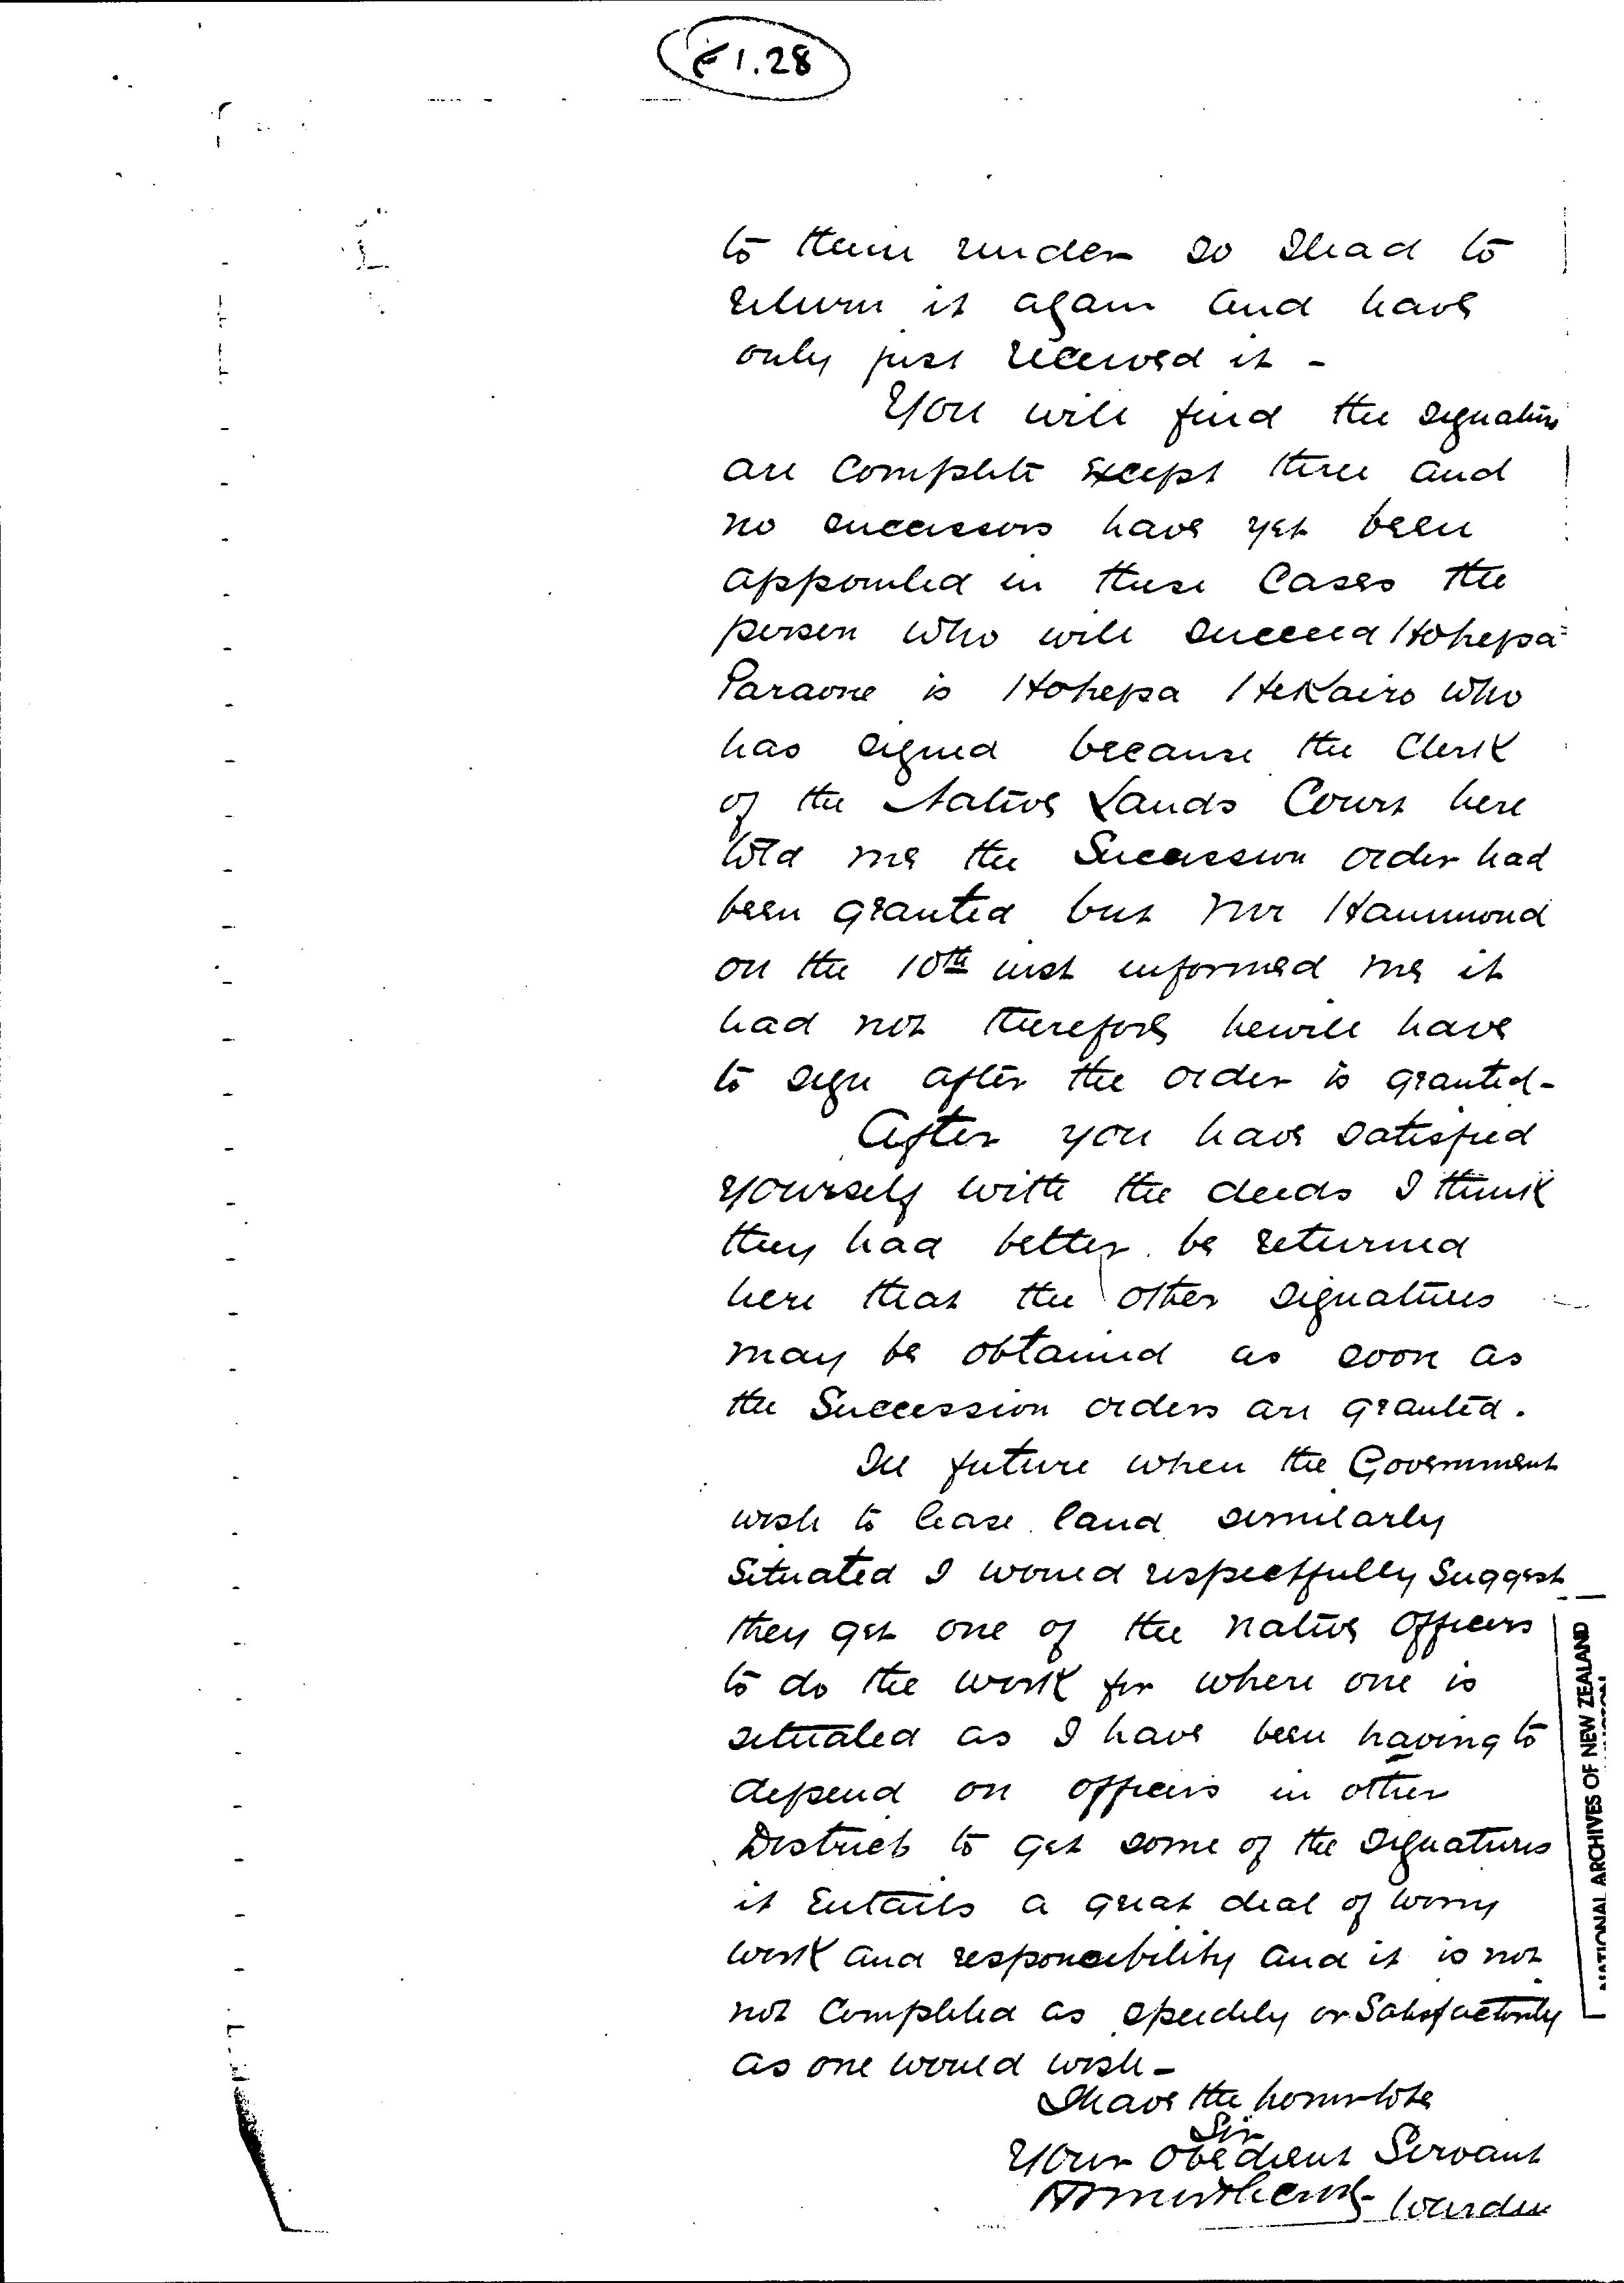 E1.28
to them under so I had to
return it again and have
only just received it -
You will find the signatures
are complete except three and
no successors have yet been
appointed in these cases the
person who will succeed Hohepa
Paraone is Hohepa HeKairo who
has signed because the Clerk
of the Native Lands Court here
told me the Succession order had
been granted but Mr Hammond
on the 10th inst informed me it
had not therefore he will have
to sign after the order is granted -
After you have satisfied
yourself with the deeds I think
they had better be returned
here that the other signatures
may be obtained as soon as
the Succession orders are granted.
In future when the Government
wish to lease land similarly
situated I would respectfully suggest
they get one of the native officers
to do the work for where one is
situated as I have been having to
depend on officers in other
Districts to get some of the signatures
it entails a great deal of worry
work and responcibility and it is not
not completed as speedily or satisfactorily
as one would wish -
I have the honor to be
Sir
Your Obedient Servant
Warden
NATIONAL ARCHIVES OF NEW ZEALAND